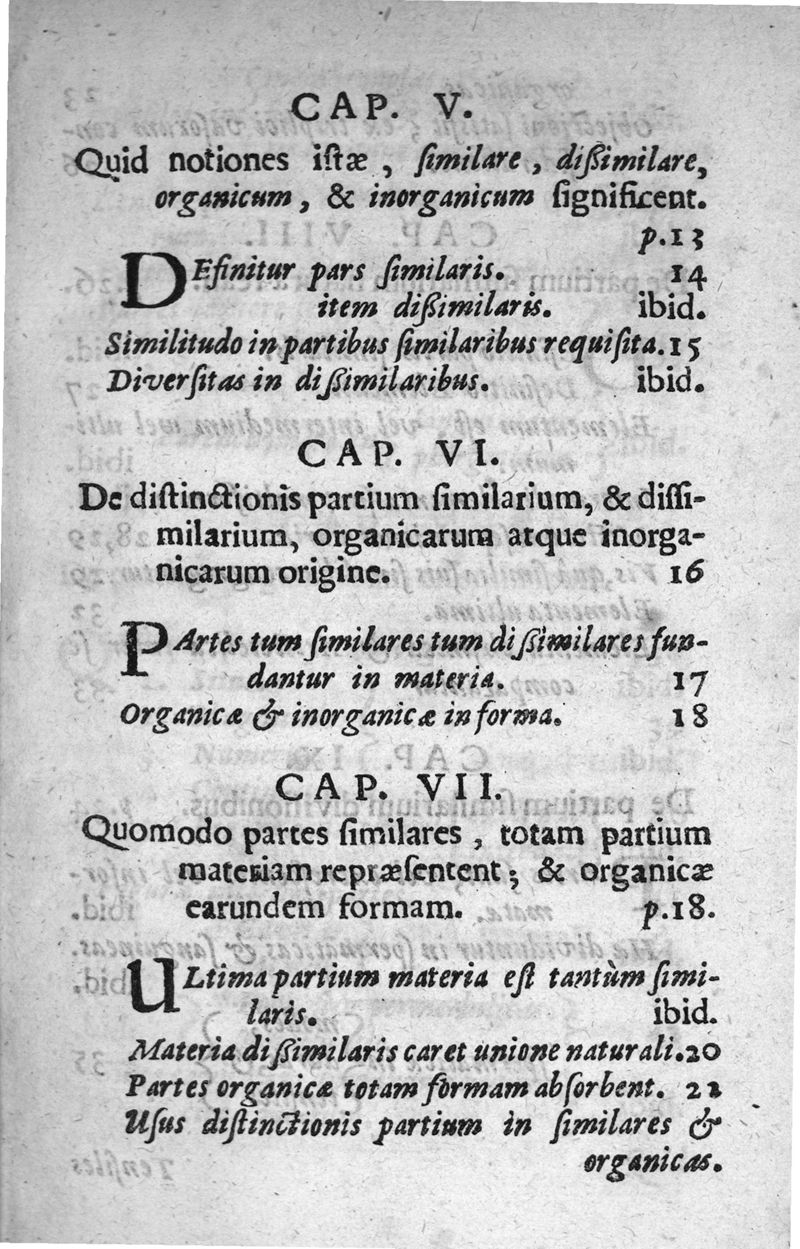 CAP. V.
Quid notiones istæ , ſimilare , diſſimilare,
organicum, & inorganicum ſignificent.
p.13
DEfinitur pars ſimilaris. 14
item diſſimilaris. ibid.
Similitudo in partibus ſimilaribus requiſita. 15
Diverſitas in diſſimilaribus. ibid.
CAP. VI.
De diſtinctionis partium ſimilarium, & diſſi-
milarium, organicarum atque inorga-
nicarum origine. 16
PArtes tum ſimilares tum diſſimilares fun-
dantur in materia. 17
Organicæ & inorganicæ in forma. 18
CAP. VII.
Quomodo partes ſimilares , totam partium
materiam repræſentent; & organicæ
earundem formam. p.18.
ULtima partium materia eſt tantùm ſimi-
laris. ibid.
Materia diſſimilaris caret unione naturali. 20
Partes organicæ totam formam abſorbent. 22
Uſus diſtinctionis partium in ſimilares &
organicas.